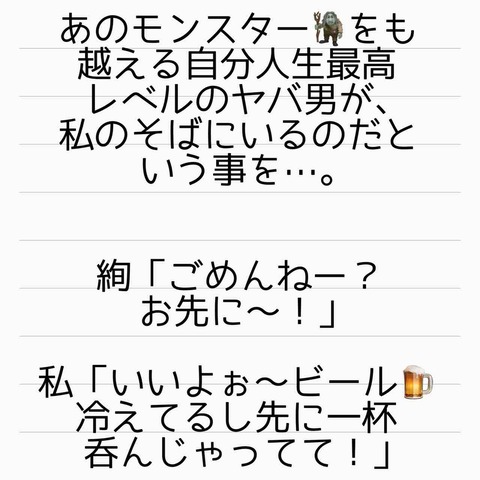 あのモンスター🧌をも
越える自分人生最高
レベルのヤバ男が、
私のそばにいるのだと
いう事を…。
絢「ごめんねー？
お先に〜！」
私「いいよぉ〜ビール🍺
冷えてるし先に一杯
呑んじゃってて！」